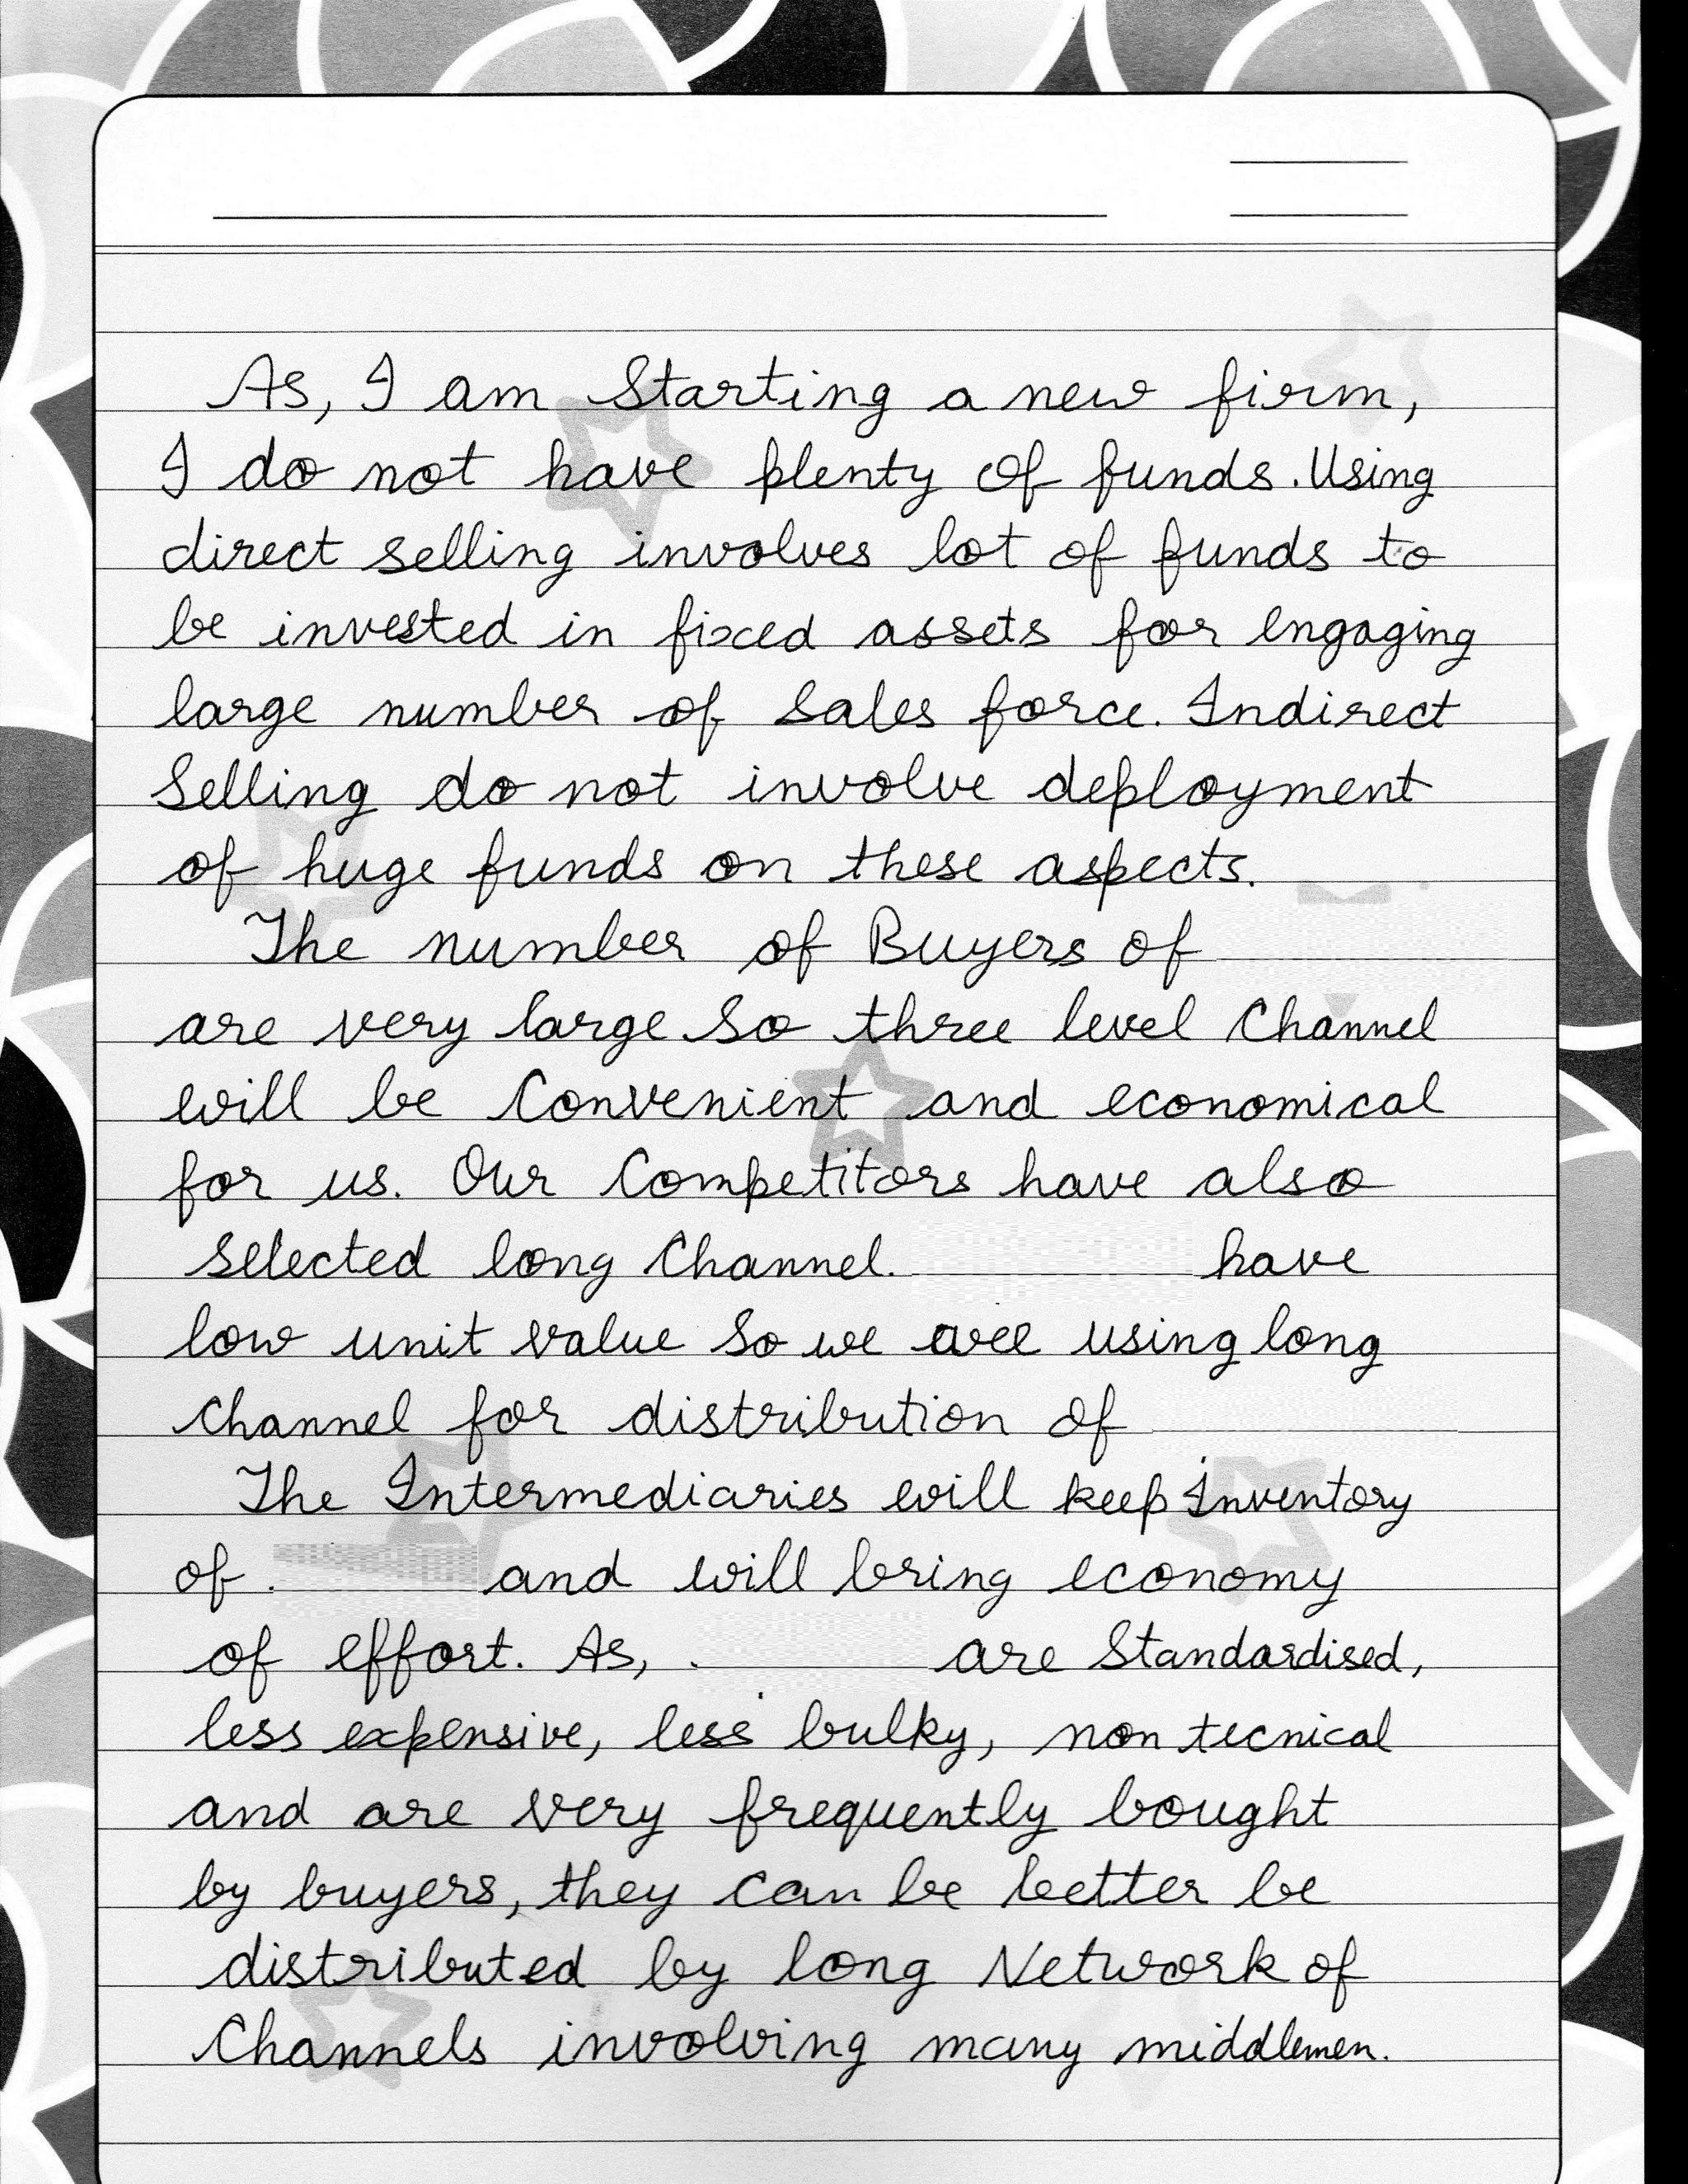 As, I am Starting a new firm,
I do not have plenty of funds. Using
direct selling involves lot of funds to
be invested in fixed assets for engaging
large number of Sales force. Indirect
Selling do not involve deployment
of huge funds on these aspects.
The number of Buyers of
are very large So three level Channel
will be Convenient and economical
for us. Our Competitors have also
Selected long Channel. have
low unit value So we are using long
Channel for distribution of
The Intermediaries will keep Inventory
of. and will bring economy
of effort. As, . are Standardised,
less expensive, less bulky, non tecnical
and are very frequently bought
by buyers, they can be better be
distributed by long Network of
Channels involving many middlemen.